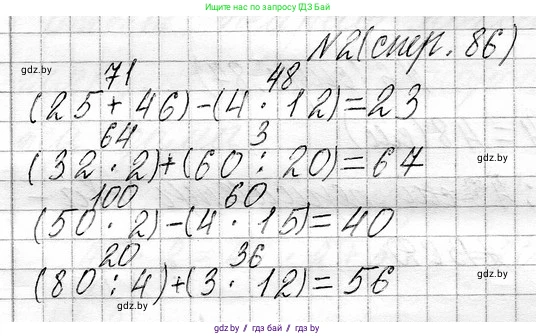 Ищите нас по запросу ГДЗ Бай
№2 (стр. 86)
gdz.by
71 48
(25 + 46) - (4 · 12) = 23
64 3
(32 · 2) + (60 : 20) = 67
gdz.by
100 60
(50 · 2) - (4 · 15) = 40
20 36
(80 : 4) + (3 · 12) = 56
gdz.by
gdz.by
gdz.by / гдз бай / gdz.by